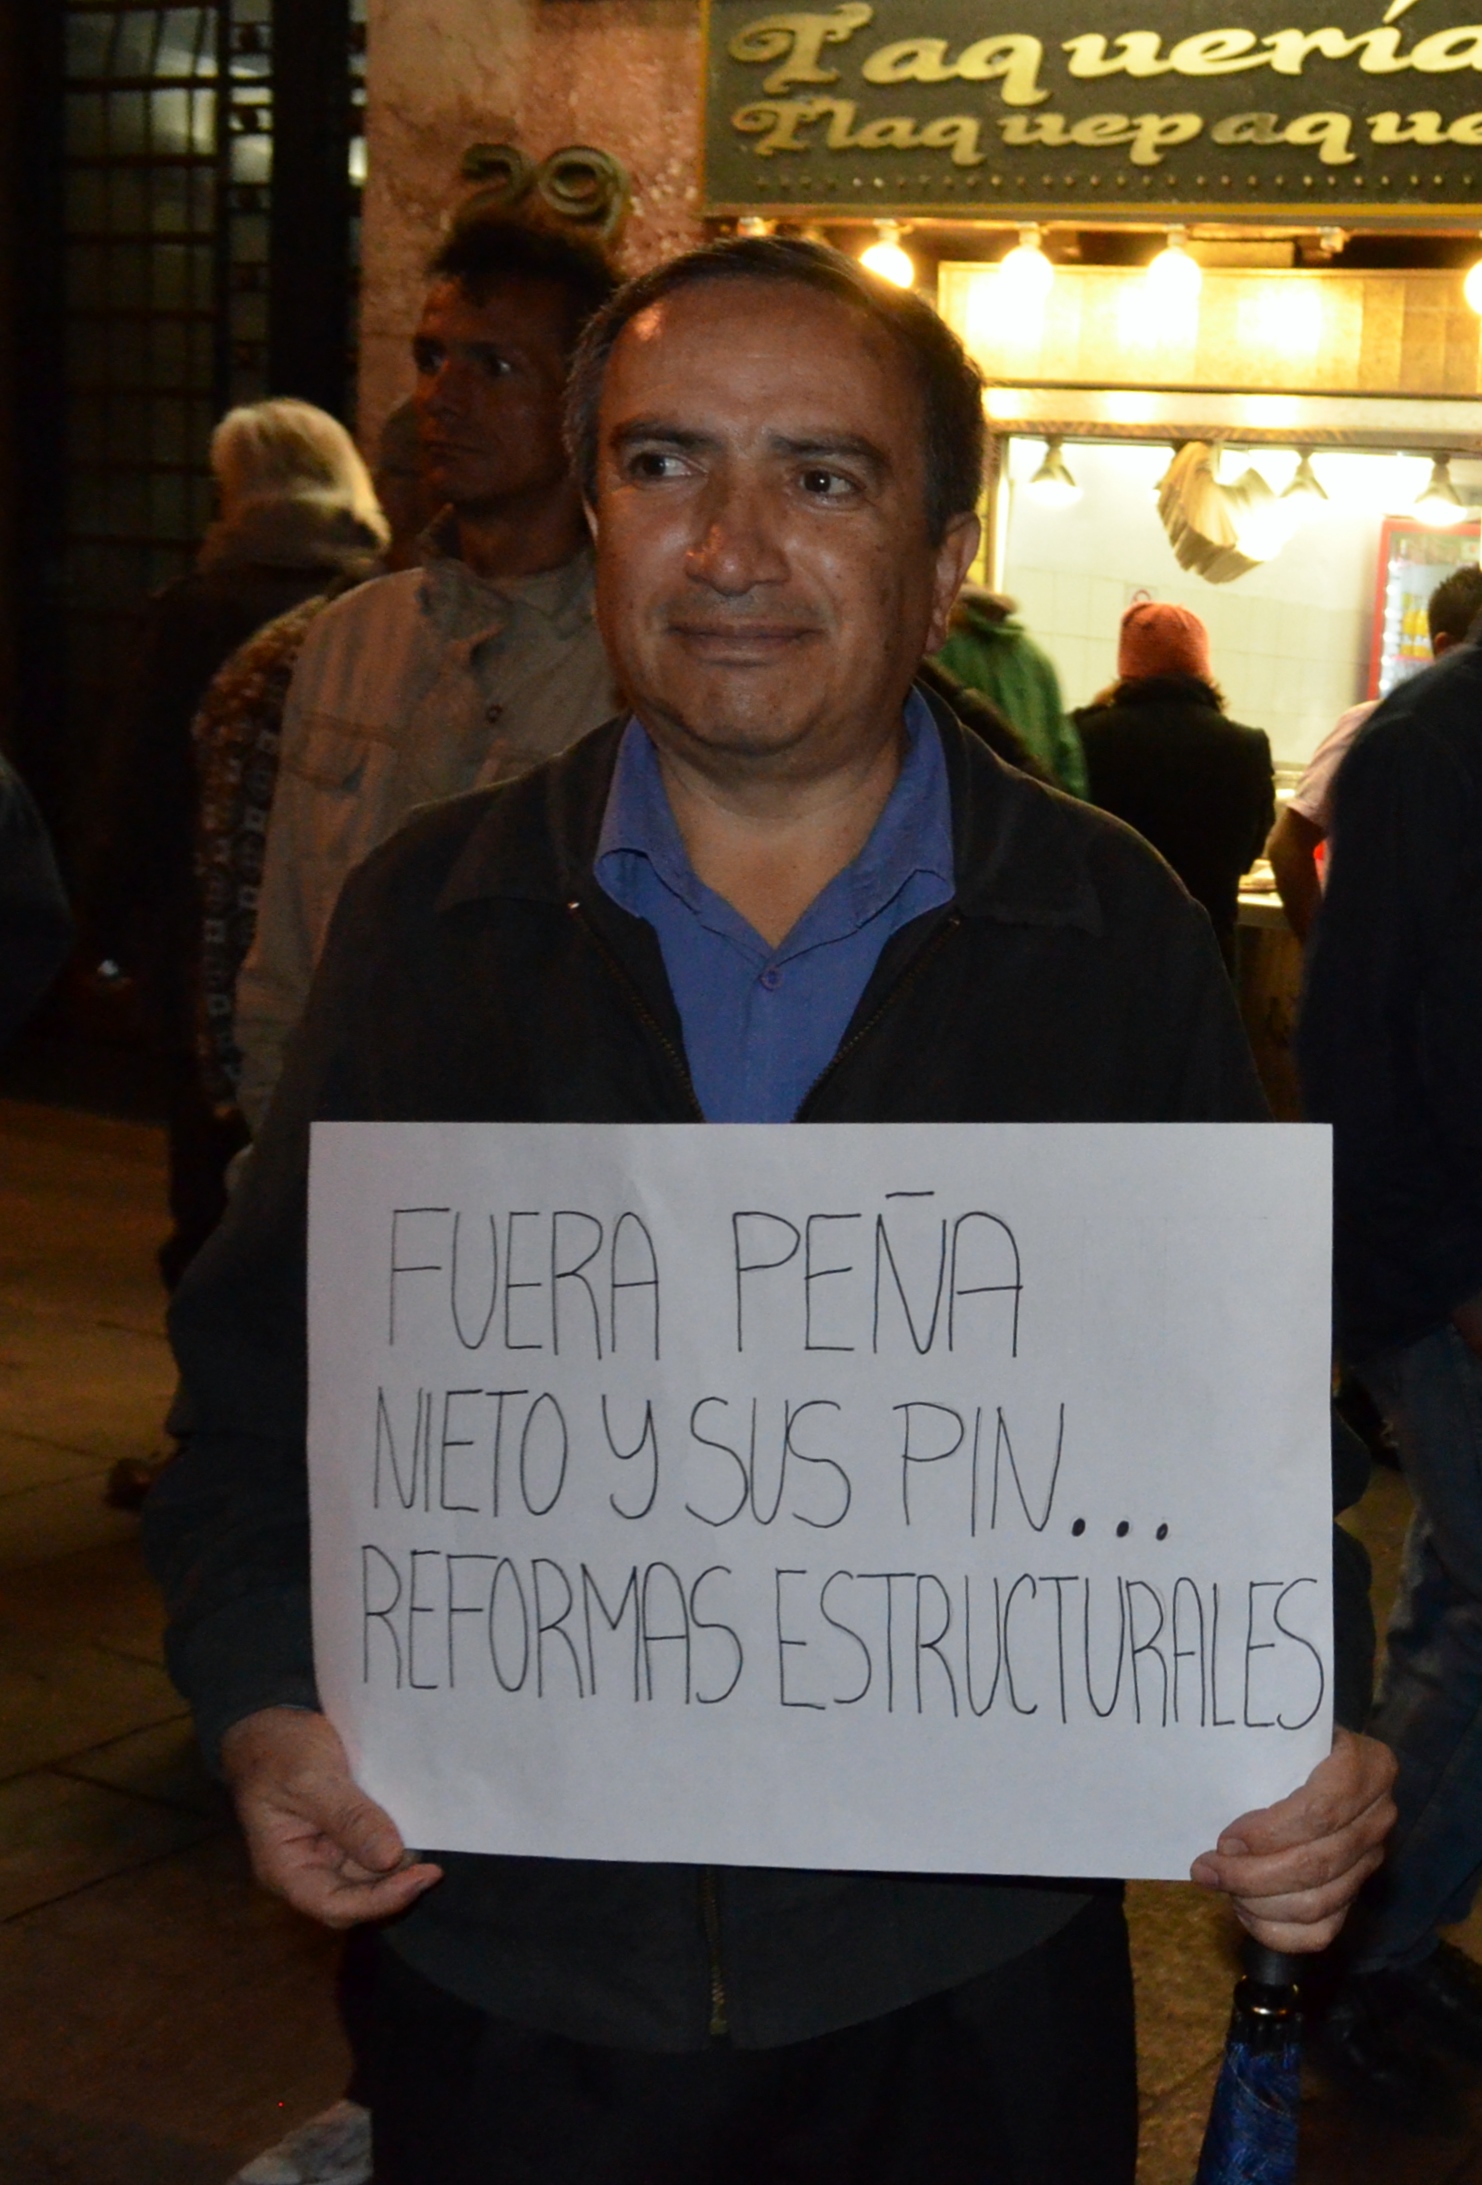 Taquería
Tlaquepaque
29
FUERA PEÑA
NIETO Y SUS PIN...
REFORMAS ESTRUCTURALES